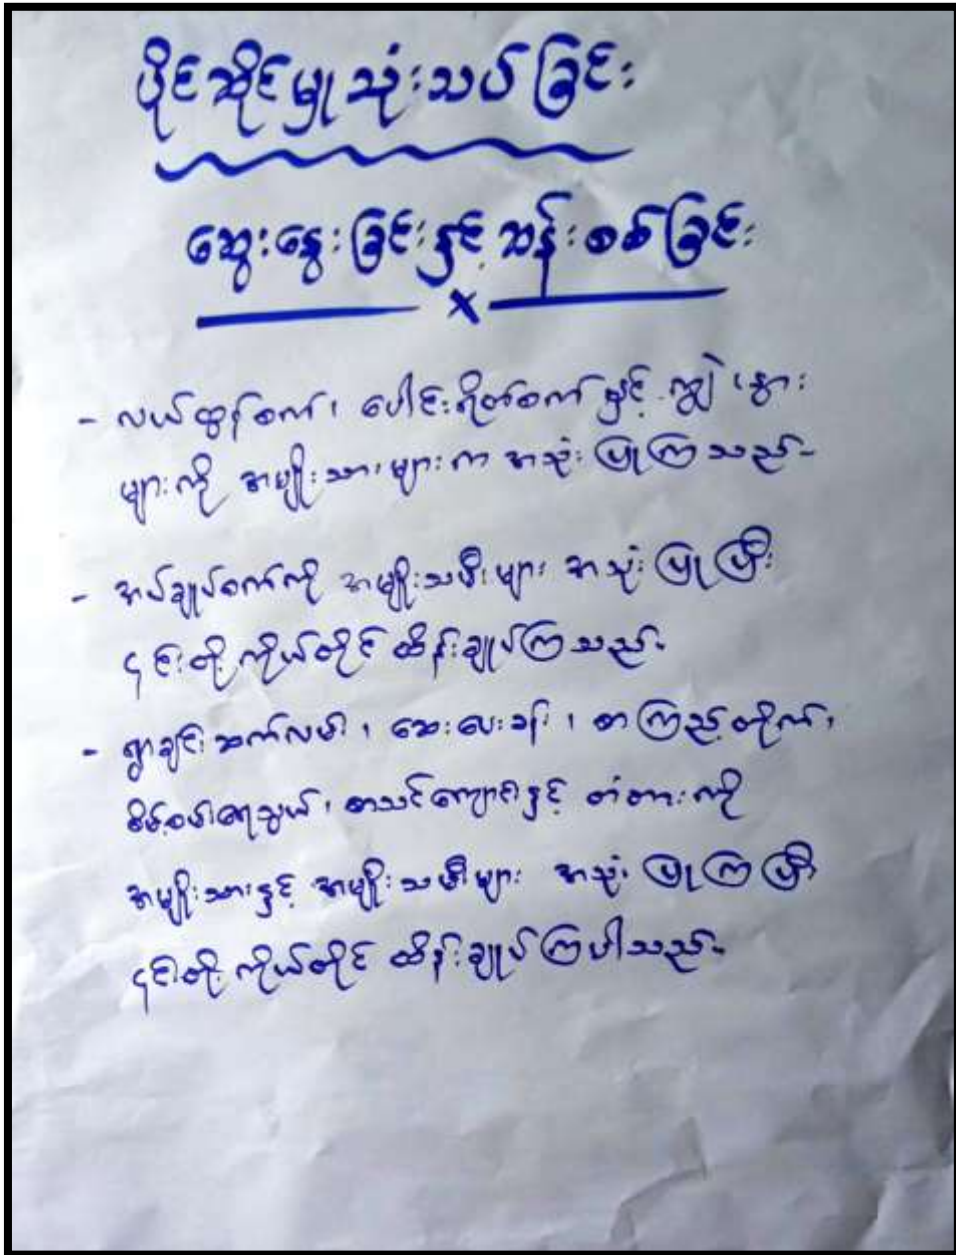 ပိုင်ဆိုင်မှုသုံးသပ်ခြင်း
ဆွေးနွေးခြင်းနှင့် ဆန်းစစ်ခြင်း
x
- လယ်ထွန်စက်၊ ပေါင်းရိတ်စက်နှင့် ကျွဲ၊ နွား
များကို အမျိုးသားများက အသုံးပြုကြသည်-
- အပ်ချုပ်စက်ကို အမျိုးသမီးများ အသုံးပြုပြီး
၎င်းတို့ကိုယ်တိုင် ထိန်းချုပ်ကြသည်-
- ရွာချင်းဆက်လမ်း၊ ဆေးပေးခန်း၊ စာကြည့်တိုက်၊
စိမ့်စမ်းရေသွယ်၊ စာသင်ကျောင်းနှင့် တံတားကို
အမျိုးသားနှင့် အမျိုးသမီးများ အသုံးပြုကြပြီး
၎င်းတို့ကိုယ်တိုင် ထိန်းချုပ်ကြပါသည်-